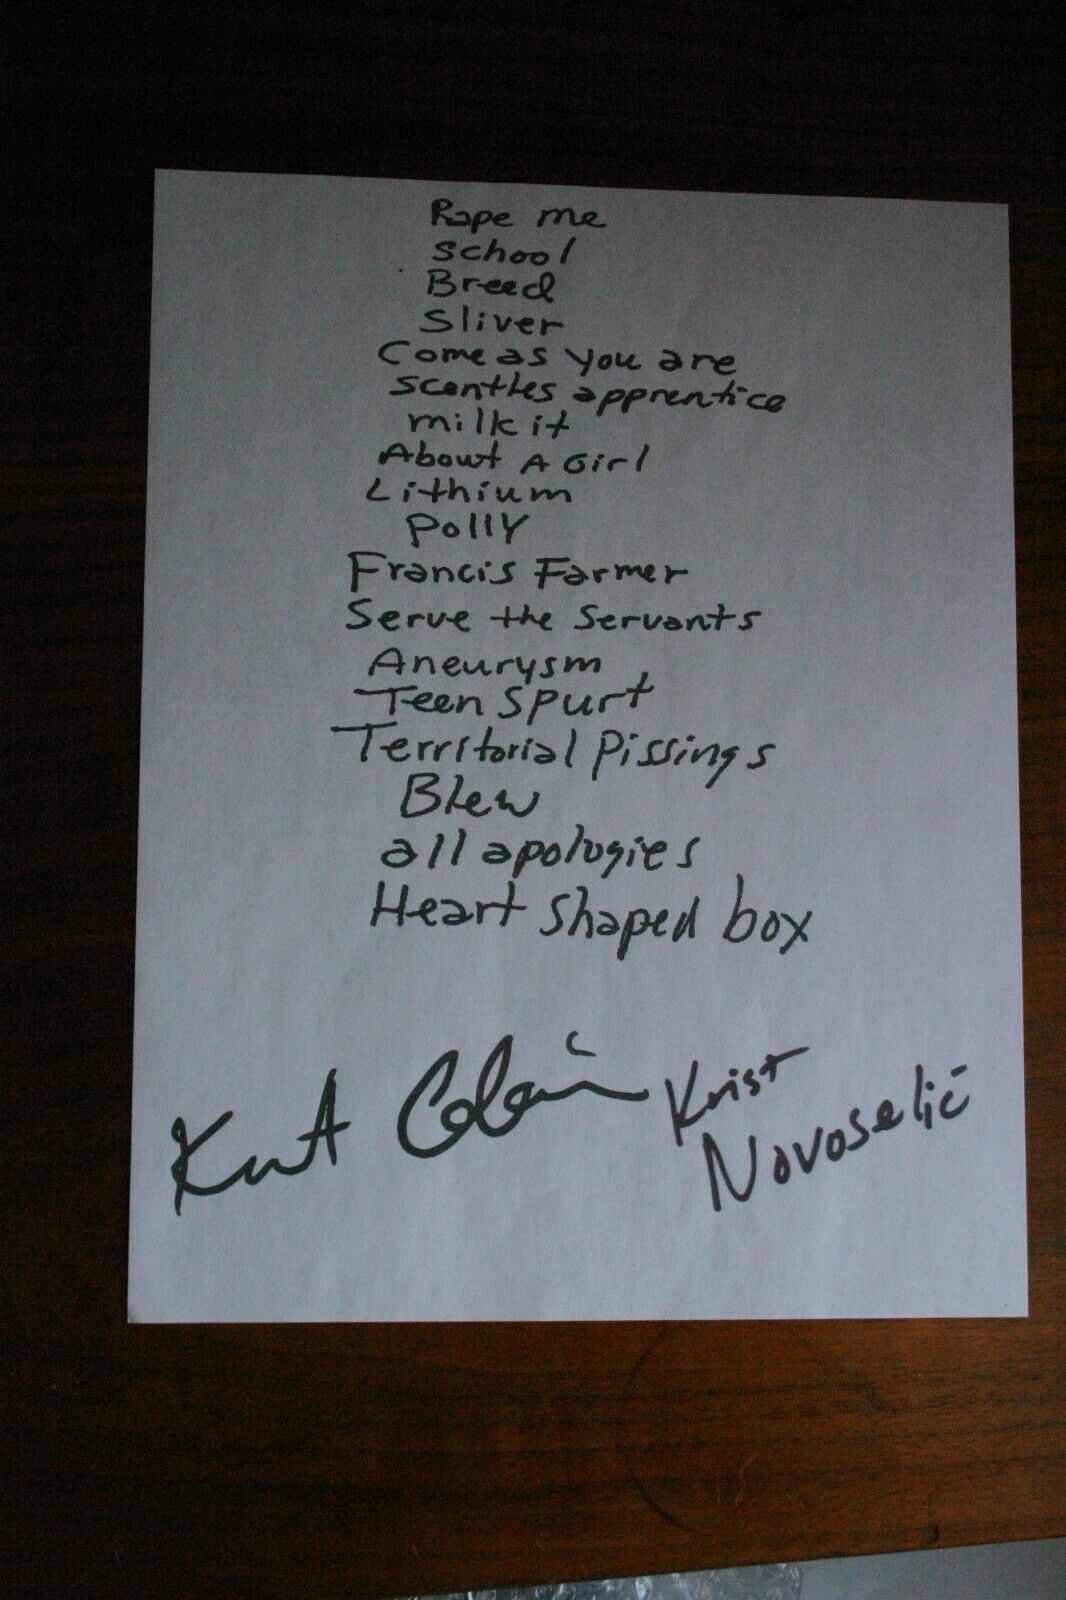 Rape me
school
Breed
Sliver
Come as you are
scentles apprentice
milk it
About A Girl
Lithium
Polly
Francis Farmer
Serve the Servants
Aneurysm
Teen Spurt
Territorial Pissings
Blew
all apologies
Heart Shaped box
Kurt Cobain
Krist
Novoselić